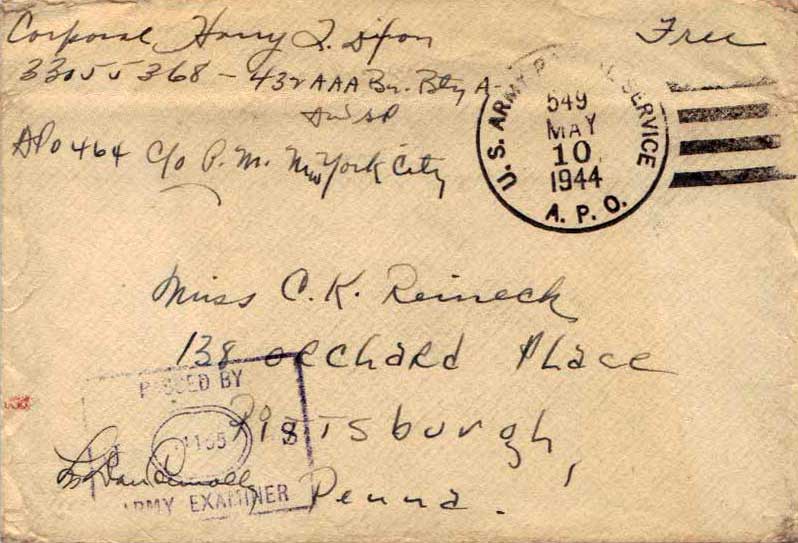 Corporal Harry L. Dixon
Free
33055368 - 432 AAA Bn. Bty A-
APO 464 C/o P.M. New York City
U.S. ARMY POSTAL SERVICE
549
MAY
10
1944
A. P. O.
Miss C. K. Reineck
138 orchard Place
Pittsburgh,
Penna.
PASSED BY
ARMY EXAMINER